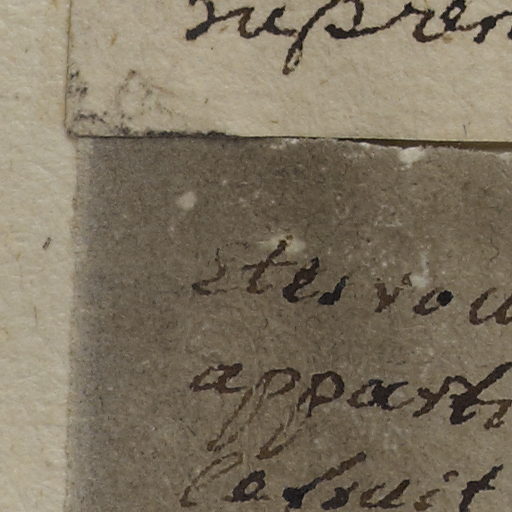 supren
etes vou
apparti
le bruit